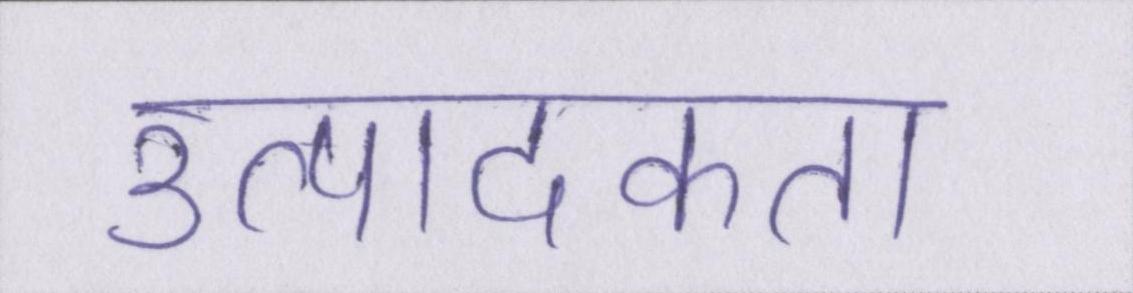 उत्पादकता